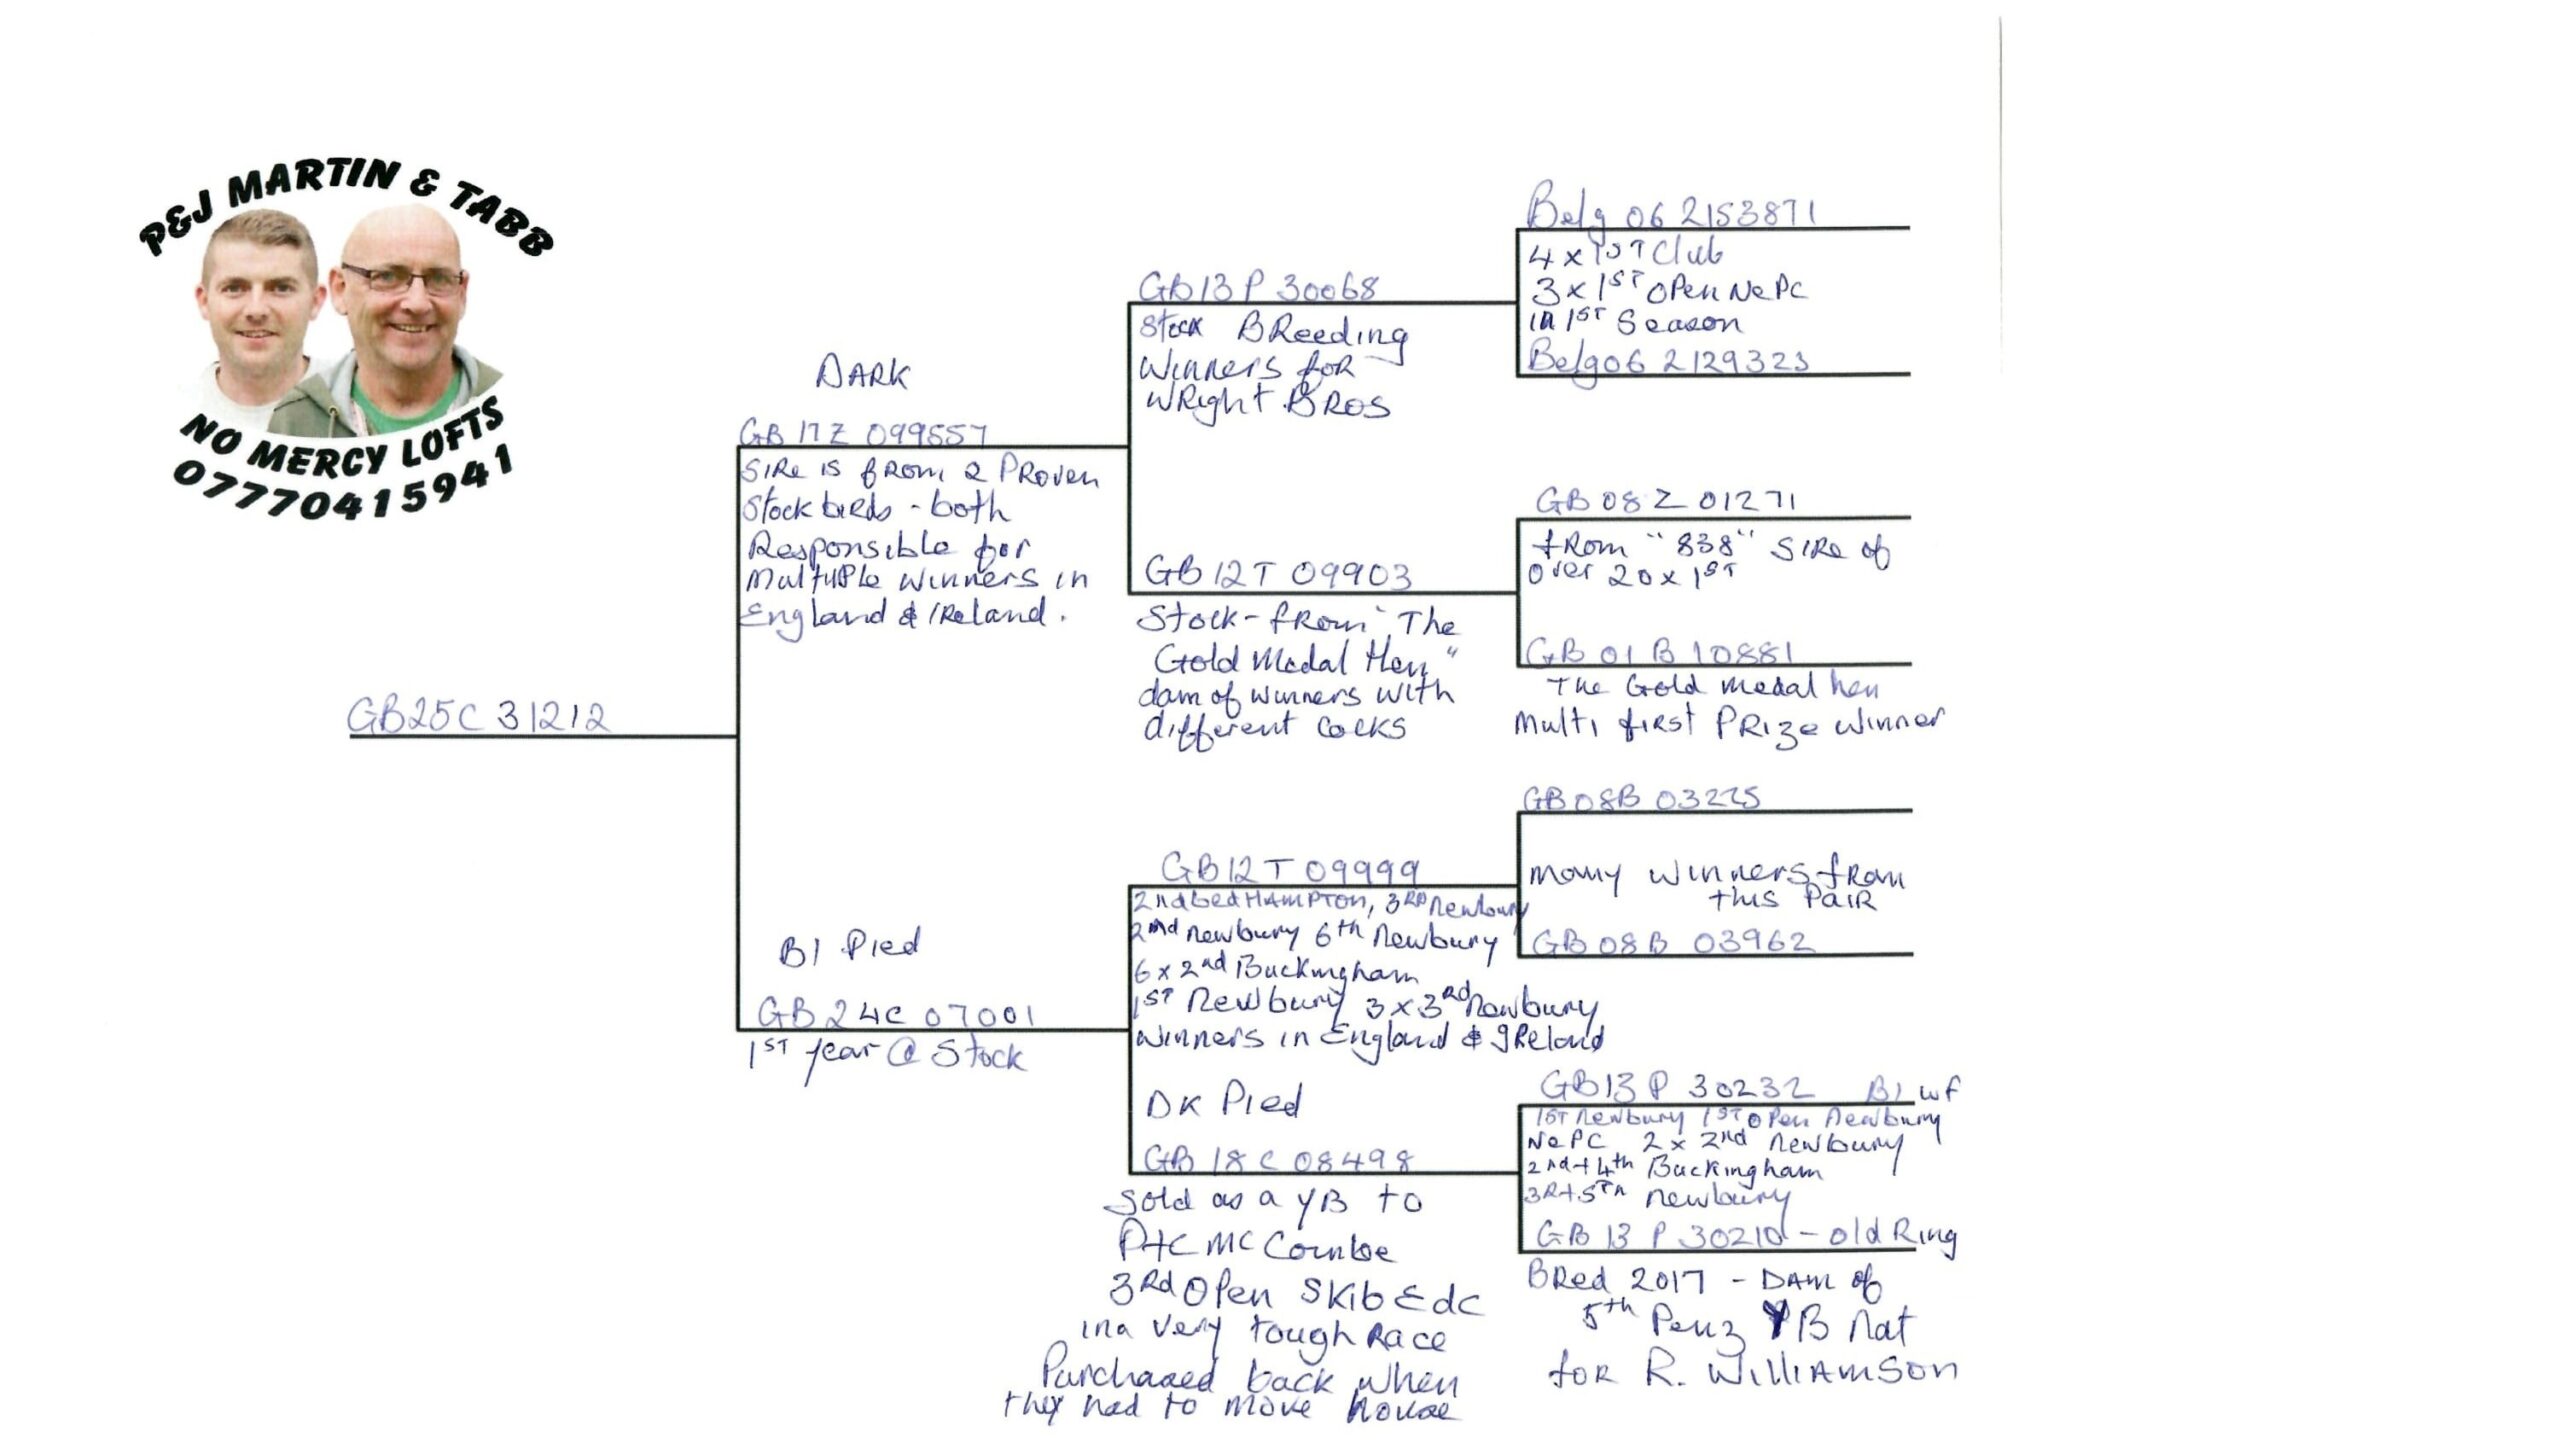 P&J MARTIN & TABB
NO MERCY LOFTS
07770415941
GB25C 31212
DARK
GB 17Z 099557
SIRe is from 2 PRoven
Stock birds - both
Responsible for
Multiple winners in
England & IReland.
Bl Pied
GB 24C 07001
1ST year @ Stock
GB13 P 30068
Stock BReeding
Winners for
WRight BROS
GB12T 09903
Stock - from "The
Gold Medal Hen"
dam of winners with
different Cocks
GB12T 09999
2nd bedHAMPTON, 3RD Newbury
2nd newbury 6th Newbury
6 x 2nd Buckingham
1ST Newbury 3 x 3Rd Newbury
Winners in England & IReland
DK Pied
GB 18 C 08498
Sold as a YB to
P+C MC Combe
3Rd Open Skib Edc
in a very tough Race
Purchased back when
they had to move house
Belg 06 2153871
4 x 1ST Club
3 x 1ST OPen NePc
in 1ST Season
Belg06 2129323
GB 08 Z 01271
from "838" SIRe of
over 20 x 1ST
GB 01 B 10881
The Gold medal hen
Multi first PRize Winner
GB08B 03225
many winners from
this PaiR
GB08B 03962
GB13 P 30232 Bl wf
1ST Newbury 1ST oPen Newbury
NePC 2 x 2nd Newbury
2nd + 4th Buckingham
3R+5th newbury
GB 13 P 30210 - old Ring
BRed 2017 - DAM of
5th Penz YB Nat
for R. WilliAmSon